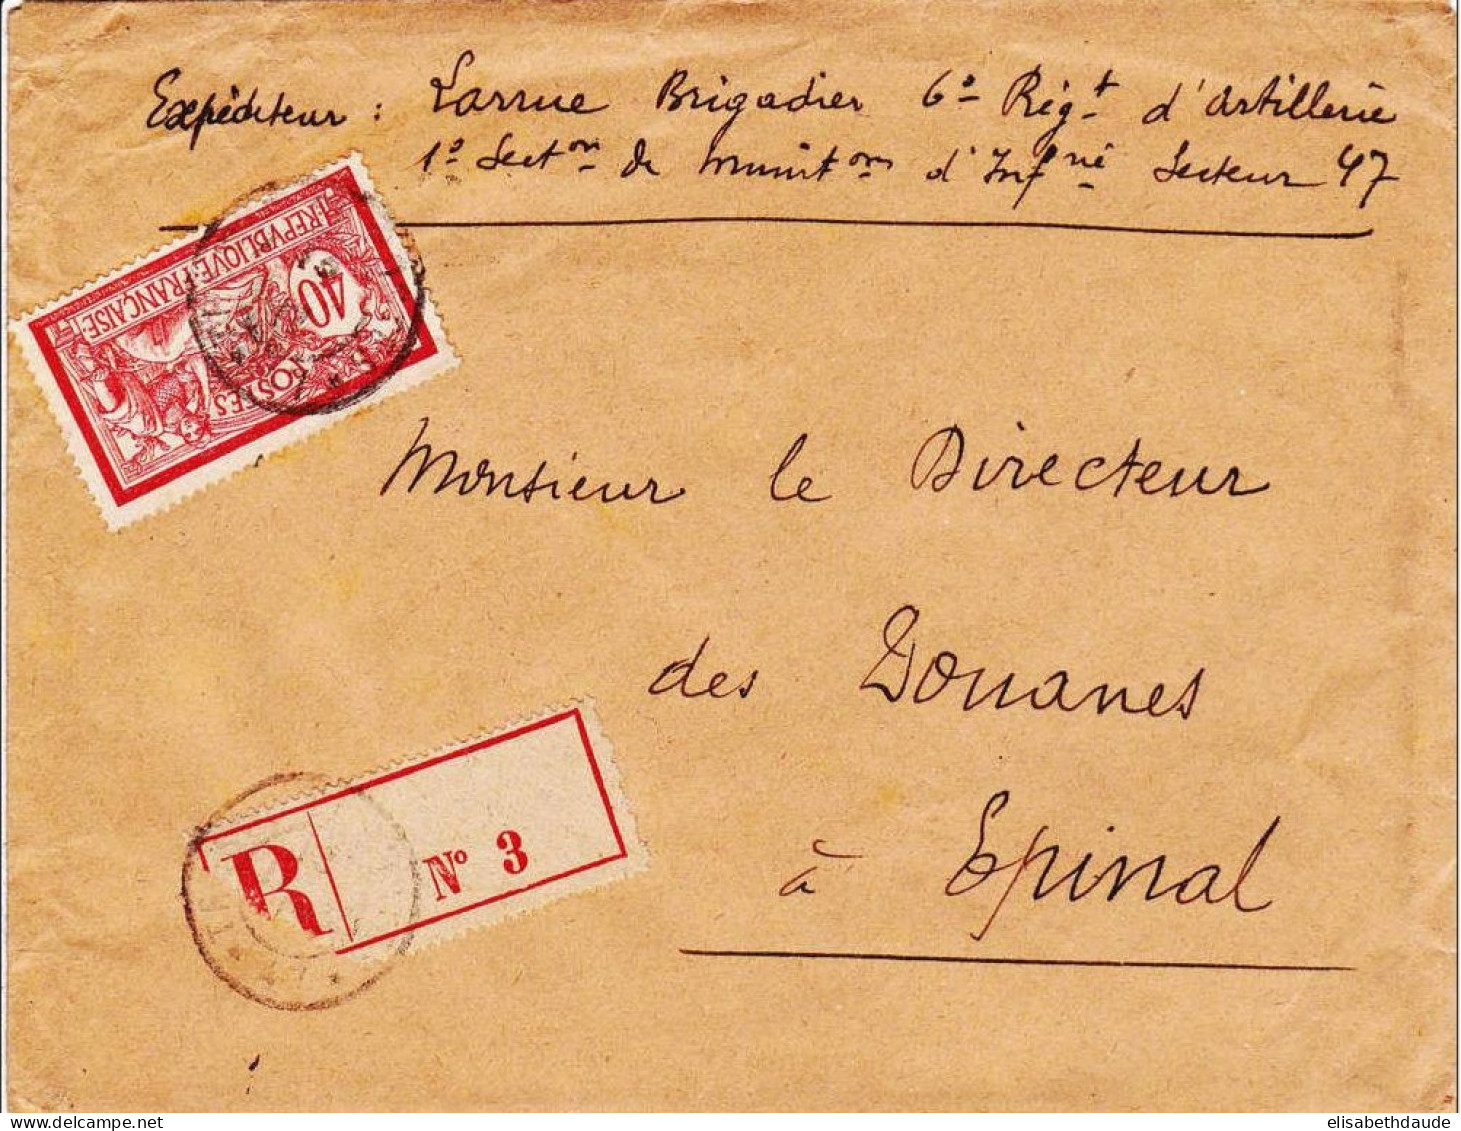 Expéditeur : Larrue Brigadier 6e Régt d'Artillerie
1e Secton de Munitons d'Infrie Secteur 47
REPVBLIQVE FRANÇAISE
40
POSTES
Monsieur le Directeur
des Douanes
à Epinal
R No 3
delcampe.net
elisabethdaude